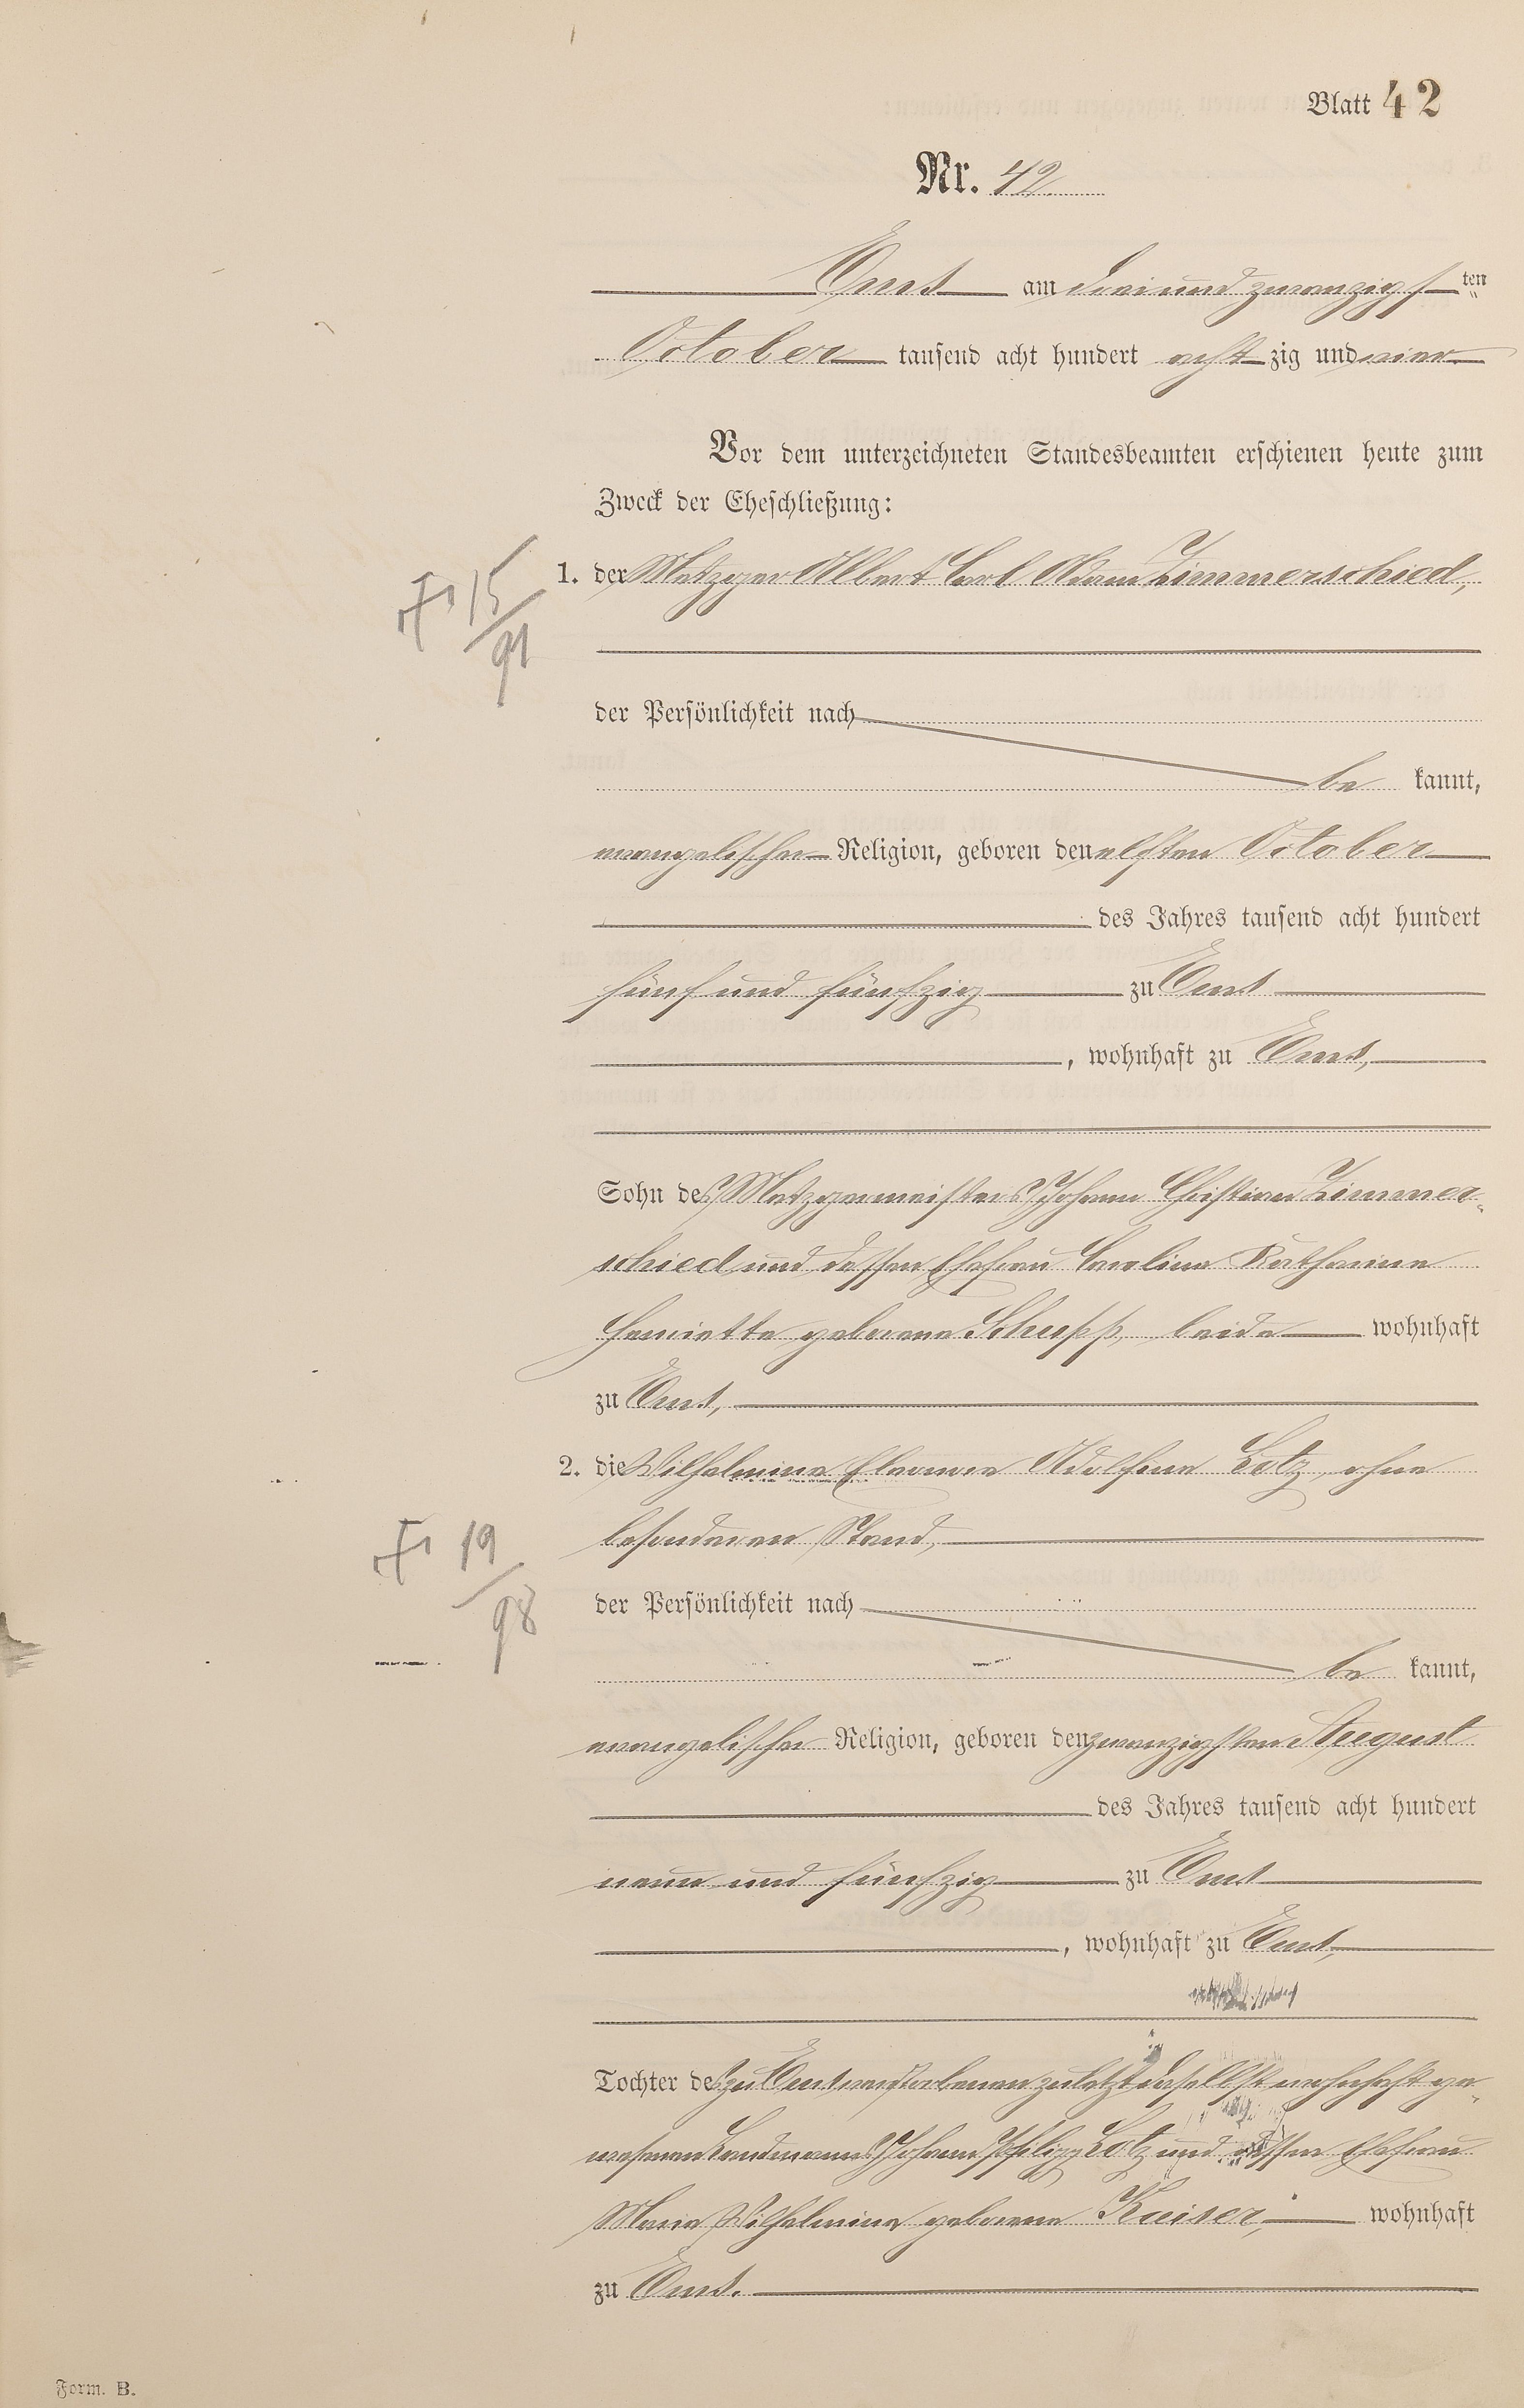 Blatt 42
Nr. 42
Ems am dreiundzwanzigsten
October tausend acht hundert achtzig und vier
Vor dem unterzeichneten Standesbeamten erschienen heute zum
Zweck der Eheschließung:
1. der Metzger Albert Carl Adam Zimmerschied,
† 15/91
der Persönlichkeit nach
be kannt,
evangelischer Religion, geboren den elften October
des Jahres tausend acht hundert
fünf und fünfzig zu Ems
, wohnhaft zu Ems,
Sohn des Metzgermeisters Johann Christian Zimmer-
schied und dessen Ehefrau Carolina Katharina
Henriette geborene Schupp, beide wohnhaft
zu Ems,
2. die Wilhelmine Eleonore Adolfine Lotz, ohne
besonderen Stand,
† 19/98
der Persönlichkeit nach
be kannt,
evangelischer Religion, geboren den zwanzigsten August
des Jahres tausend acht hundert
neun und fünfzig zu Ems
, wohnhaft zu Ems,
Tochter des zu Ems verstorbenen zuletzt daselbst wohnhaft ge-
wesenen Landmanns Johann Philipp Lotz und dessen Ehefrau
Maria Wilhelmina geborene Kaiser, wohnhaft
zu Ems.
Form. B.